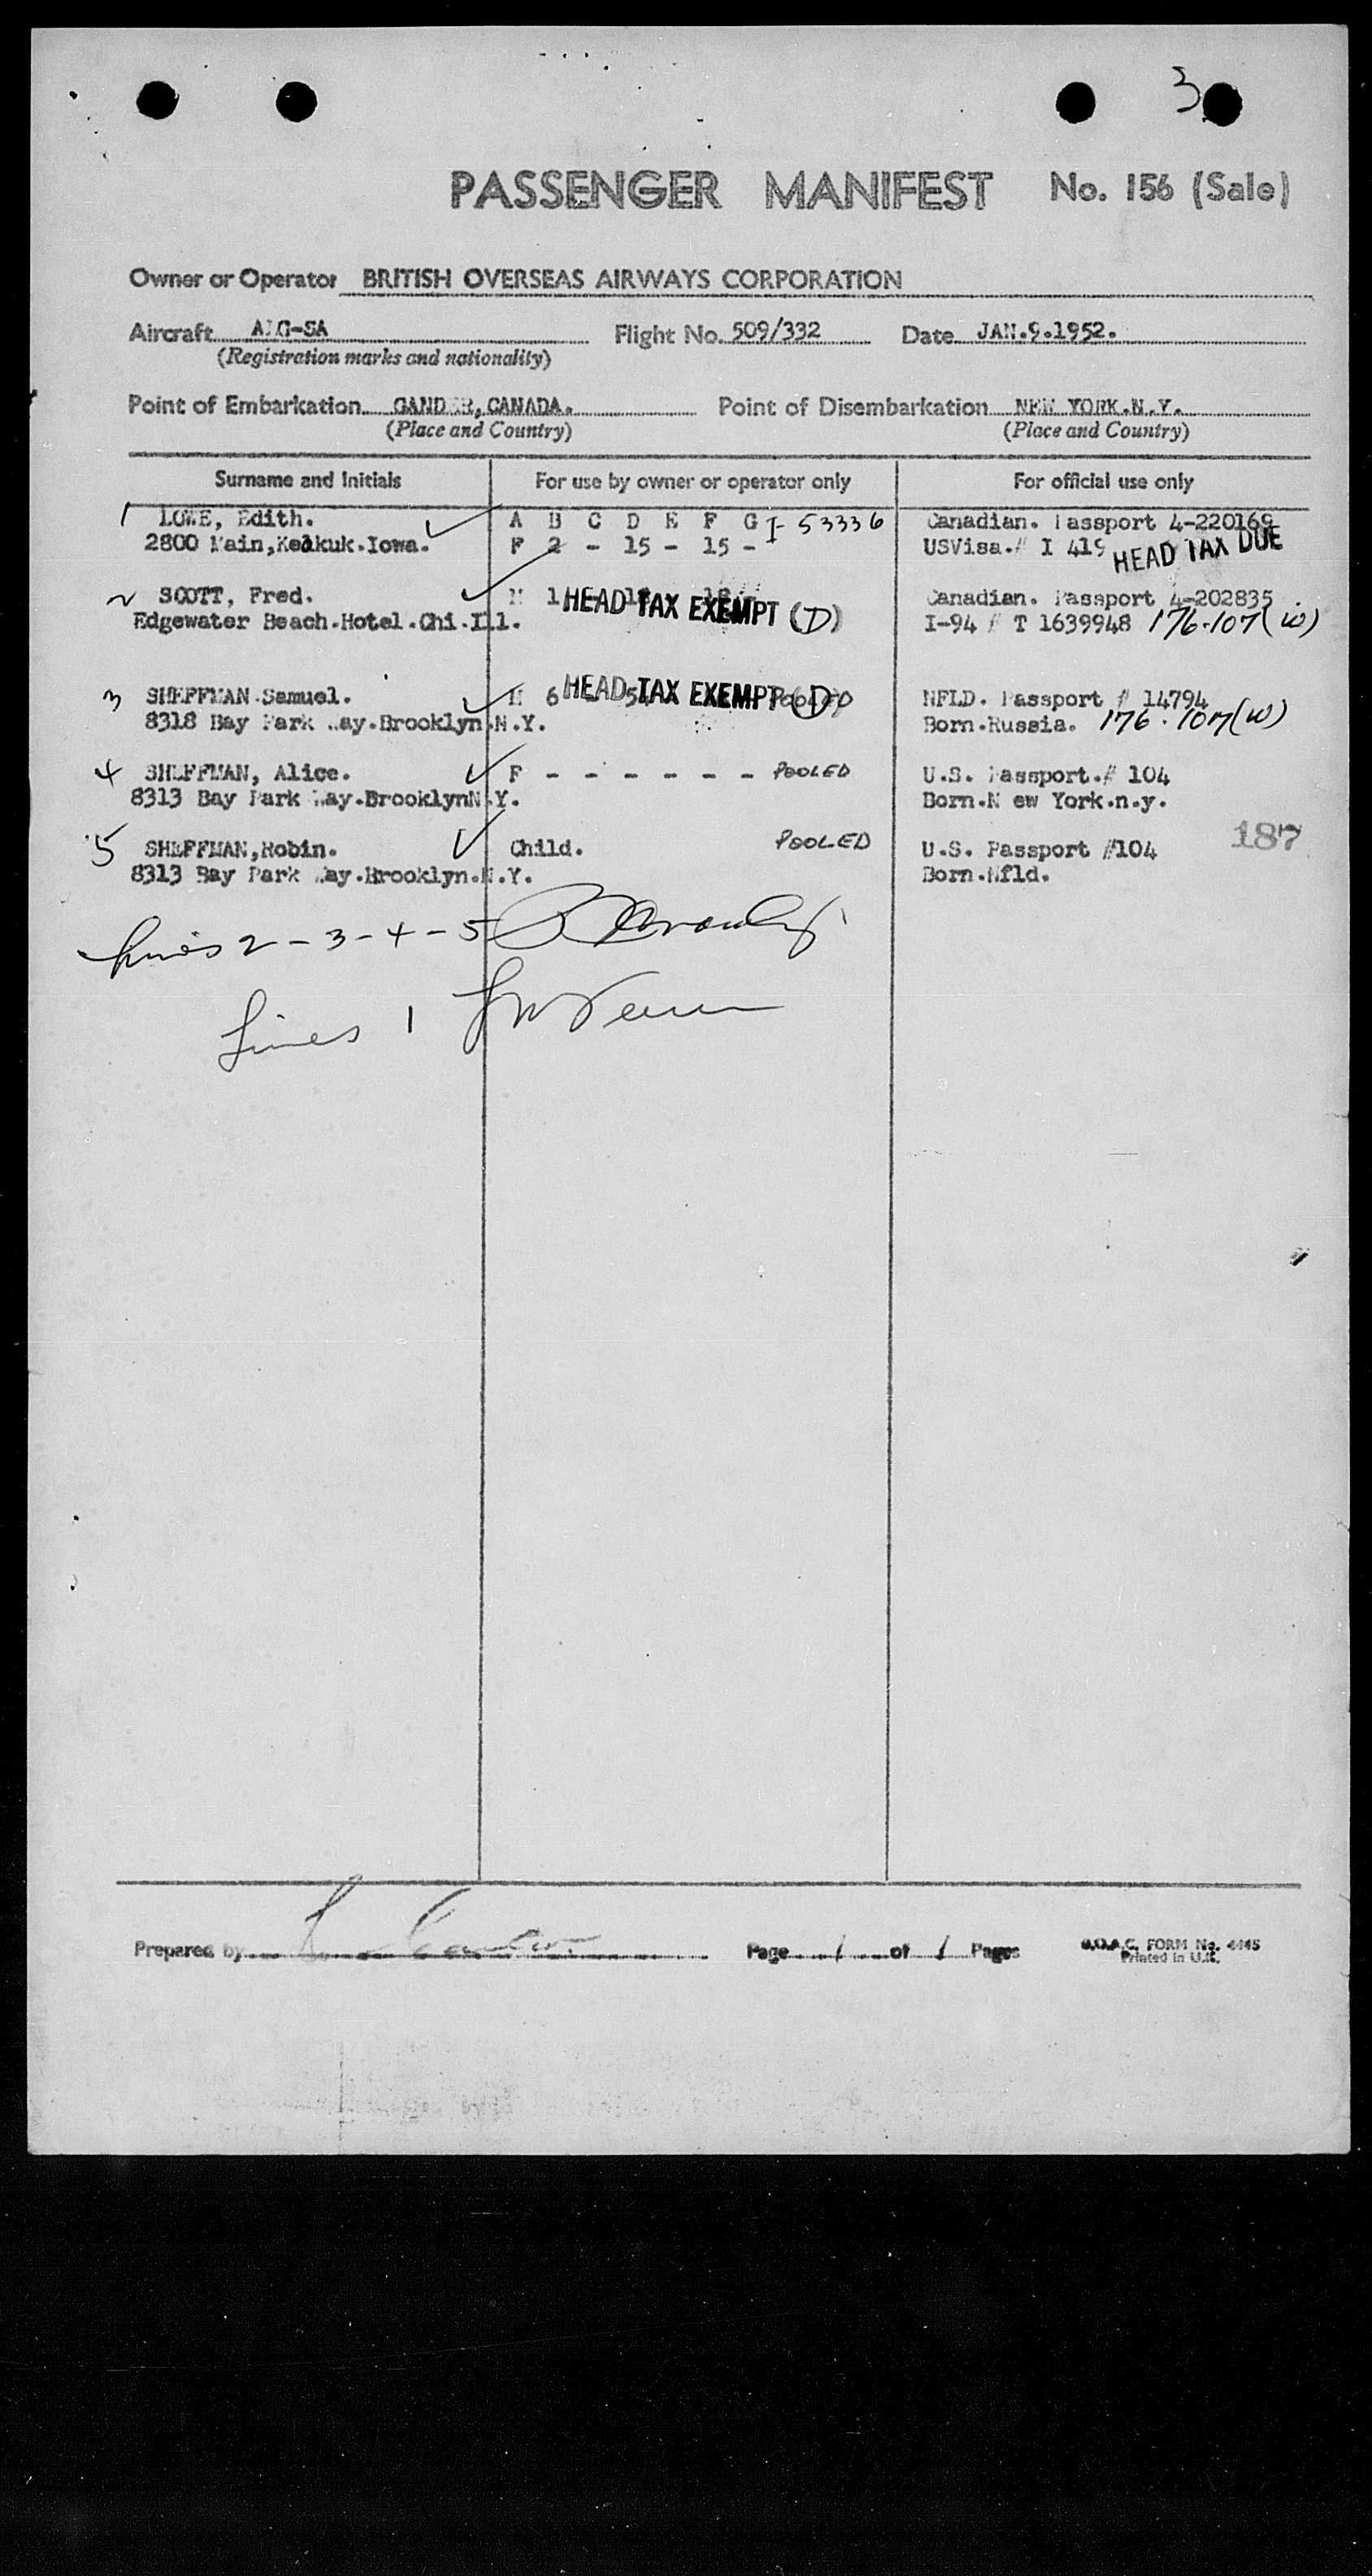 3
PASSENGER MANIFEST No. 156 (Sale)
Owner or Operator BRITISH OVERSEAS AIRWAYS CORPORATION
Aircraft Flight No. 509/332 Date JAN.9.1952.
(Registration marks and nationality)
Point of Embarkation GANDER, CANADA. Point of Disembarkation NEW YORK.N.Y.
(Place and Country) (Place and Country)
Surname and Initials For use by owner or operator only For official use only
1 LOWE, Edith. A B C D E F G I- 53336 Canadian. Passport 4-220169
2800 Main,Keokuk.Iowa. F 2 - 15 - 15 - USVisa.# I 419 HEAD TAX DUE
2 SCOTT, Fred. M 1 HEAD TAX EXEMPT (D) Canadian. Passport 4-202835
Edgewater Beach.Hotel.Chi.Ill. I-94 # T 1639948 176.107(w)
3 SHEFFMAN.Samuel. M 6 HEAD TAX EXEMPT (D) POOLED NFLD. Passport # 14794
8318 Bay Park Way.Brooklyn.N.Y. Born.Russia. 176.107(w)
4 SHEFFMAN, Alice. F - - - - - - POOLED U.S. Passport.# 104
8313 Bay Park Way.BrooklynN.Y. Born.N ew York.n.y.
5 SHEFFMAN,Robin. Child. POOLED U.S. Passport #104 187
8313 Bay Park Way.Brooklyn.N.Y. Born.Nfld.
Lines 2-3-4-5
Lines 1
Prepared by Page 1 of 1 Pages B.O.A.C. FORM No. 4445
Printed in U.K.